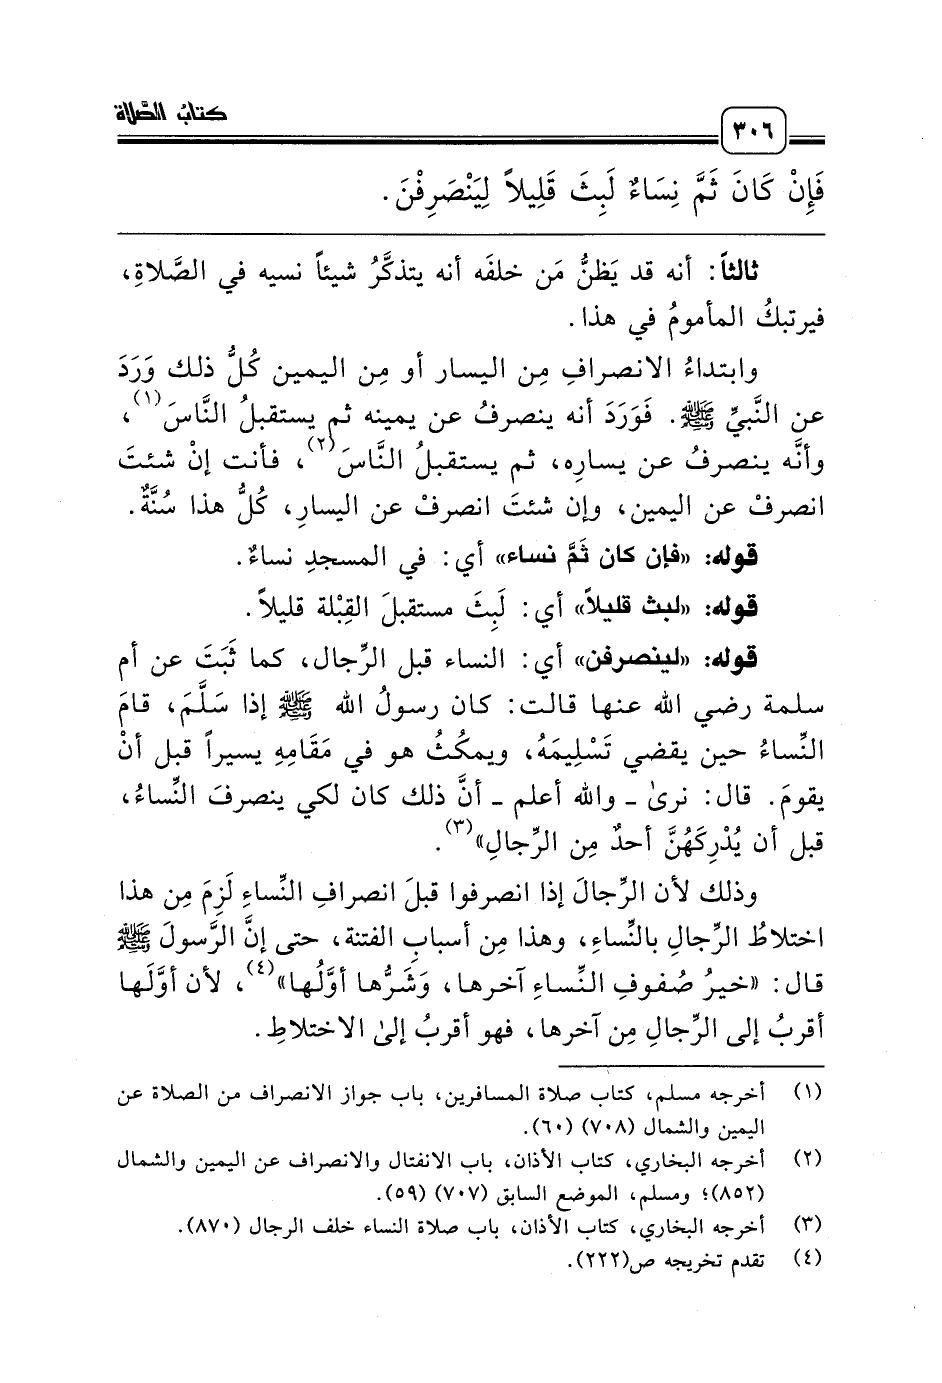 كتاب الصلاة
٣٠٦
فَإِنْ كَانَ ثَمَّ نِسَاءٌ لَبِثَ قَلِيلاً لِيَنْصَرِفْنَ.
ثالثاً: أنه قد يَظنُّ مَن خلفَه أنه يتذكَّرُ شيئاً نسيه في الصَّلاةِ،
فيرتبكُ المأمومُ في هذا.
وابتداءُ الانصرافِ مِن اليسار أو مِن اليمين كُلُّ ذلك وَرَدَ
عن النَّبيِّ ﷺ. فَوَرَدَ أنه ينصرفُ عن يمينه ثم يستقبلُ النَّاسَ(١)،
وأنَّه ينصرفُ عن يسارِه، ثم يستقبلُ النَّاسَ(٢)، فأنت إنْ شئتَ
انصرفْ عن اليمين، وإن شئتَ انصرفْ عن اليسارِ، كُلُّ هذا سُنَّةٌ.
قوله: «فإن كان ثَمَّ نساء» أي: في المسجدِ نساءٌ.
قوله: «لبث قليلاً» أي: لَبِثَ مستقبلَ القِبْلة قليلاً.
قوله: «لينصرفن» أي: النساء قبل الرِّجال، كما ثَبَتَ عن أم
سلمة رضي الله عنها قالت: كان رسولُ الله ﷺ إذا سَلَّمَ، قامَ
النِّساءُ حين يقضي تَسْلِيمَهُ، ويمكُثُ هو في مَقَامِهِ يسيراً قبل أنْ
يقومَ. قال: نرىٰ ـ والله أعلم ـ أنَّ ذلك كان لكي ينصرفَ النِّساءُ،
قبل أن يُدْرِكَهُنَّ أحدٌ مِن الرِّجالِ»(٣).
وذلك لأن الرِّجالَ إذا انصرفوا قبلَ انصرافِ النِّساءِ لَزِمَ مِن هذا
اختلاطُ الرِّجالِ بالنِّساءِ، وهذا مِن أسبابِ الفتنة، حتى إنَّ الرَّسولَ ﷺ
قال: «خيرُ صُفوفِ النِّساءِ آخرها، وَشَرُّها أوَّلُها»(٤)، لأن أوَّلَها
أقربُ إلى الرِّجالِ مِن آخرها، فهو أقربُ إلىٰ الاختلاطِ.
(١) أخرجه مسلم، كتاب صلاة المسافرين، باب جواز الانصراف من الصلاة عن
اليمين والشمال (٧٠٨) (٦٠).
(٢) أخرجه البخاري، كتاب الأذان، باب الانفتال والانصراف عن اليمين والشمال
(٨٥٢)؛ ومسلم، الموضع السابق (٧٠٧) (٥٩).
(٣) أخرجه البخاري، كتاب الأذان، باب صلاة النساء خلف الرجال (٨٧٠).
(٤) تقدم تخريجه ص(٢٢٢).